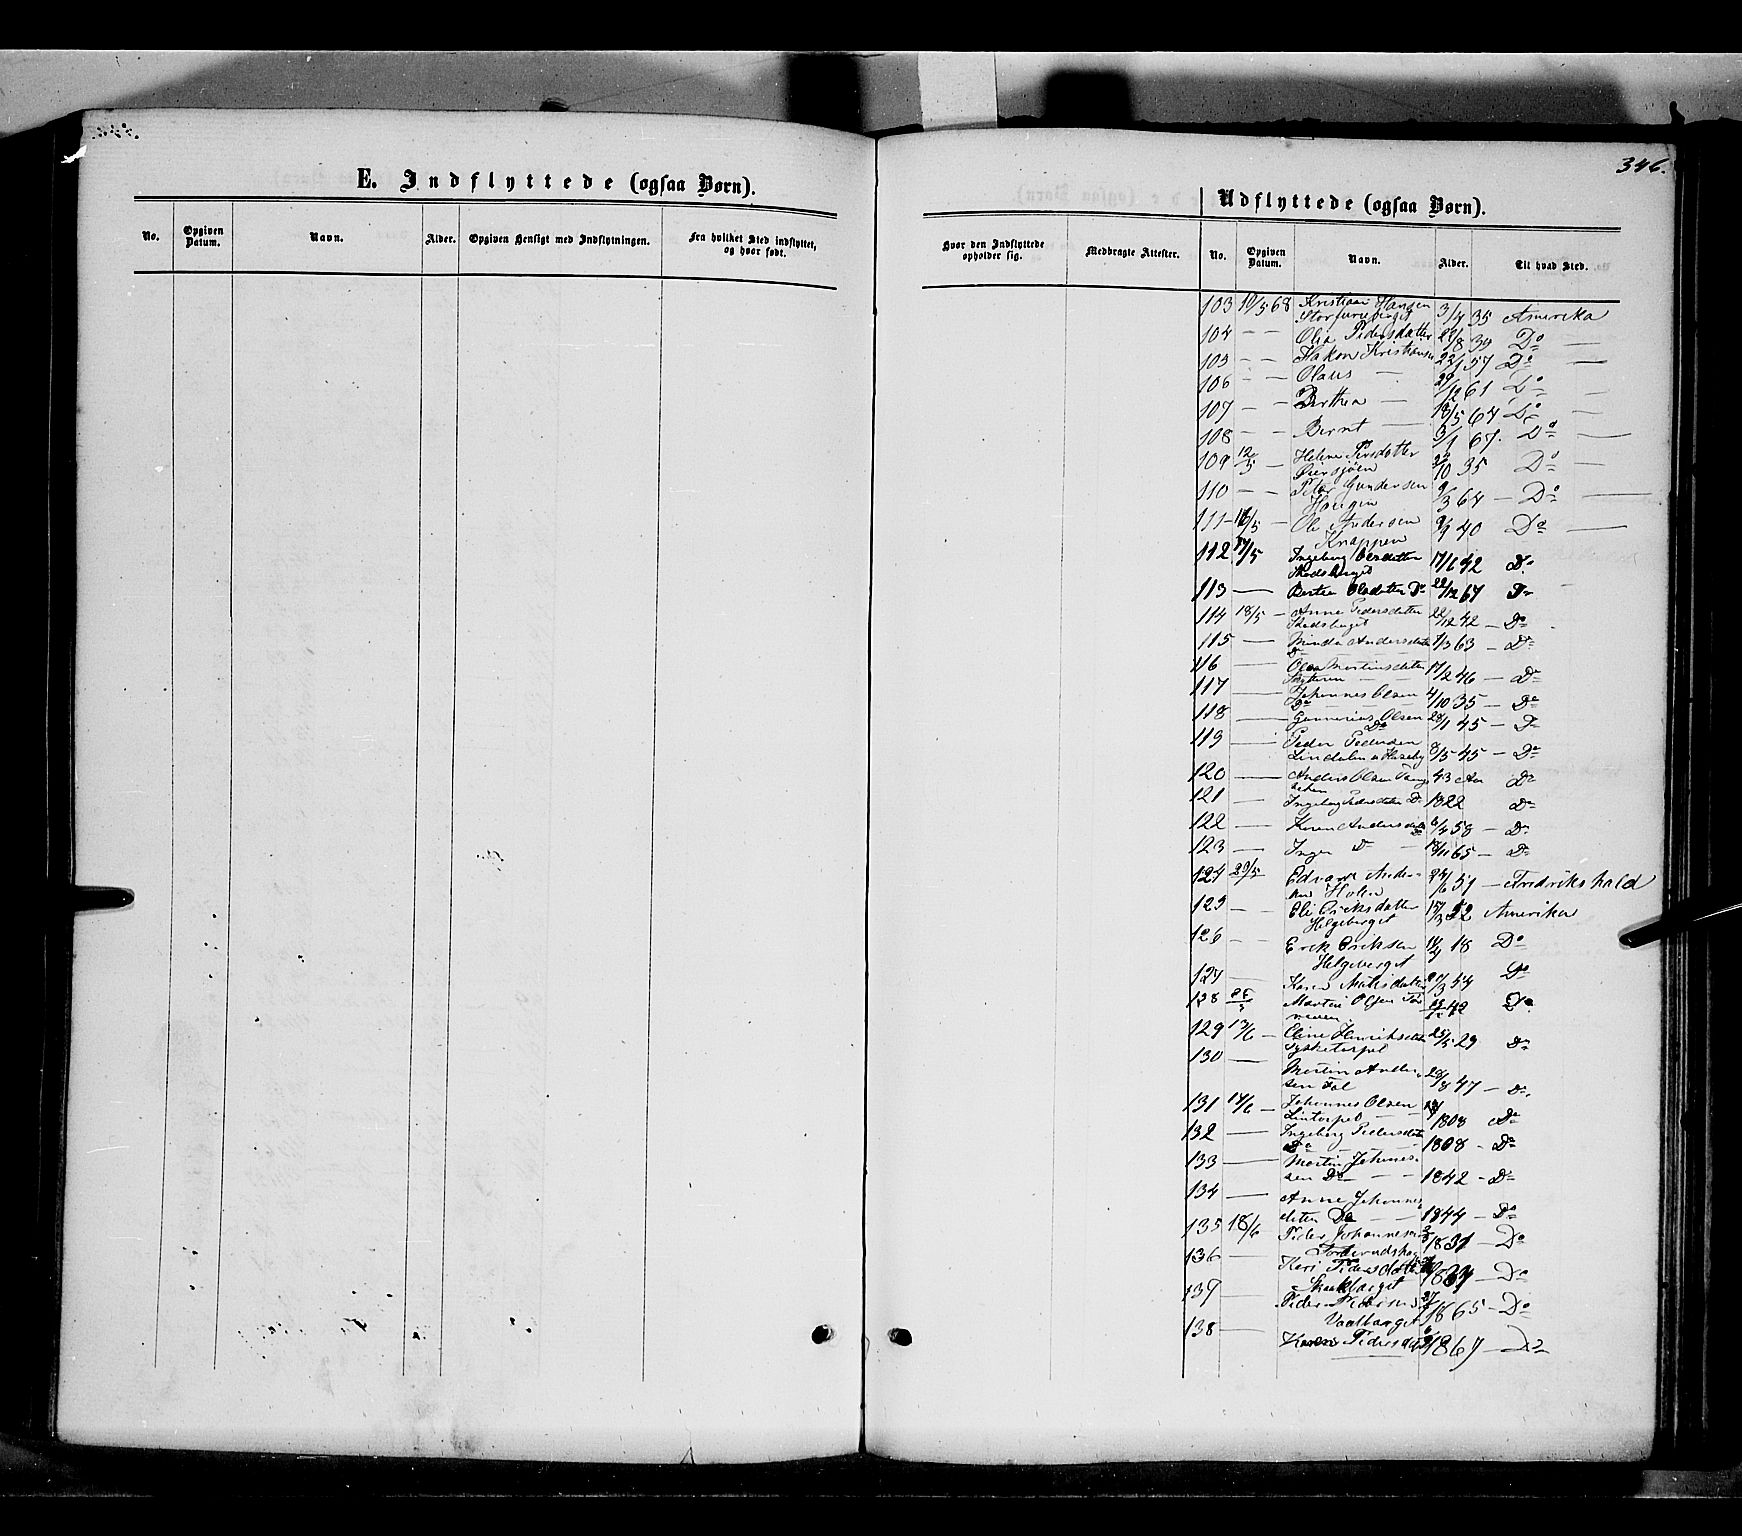 346.
E. Indflyttede (ogsaa Børn).
Udflyttede (ogsaa Børn).
No. Opgiven Datum. Navn. Alder. Opgiven Hensigt med Indflytningen. Fra hvilket Sted indflyttet, og hvor født.
Hvor den Indflyttede opholder sig. Medbragte Attester. No. Opgiven Datum. Navn. Alder. Til hvad Sted.
103 10/5 68 Kristian Hansen
3/4 35 Amerika
104 - - Olia Pedersdatter 29/8 39 Do -
105 - - Hakon Kristiansen 22/1 57 Do -
106 - - Olaus - 29/12 61 Do -
107 - - Berthea - 18/5 64 Do -
108 - - Bernt - 3/1 67. Do -
109 12/5 - Helene Persdatter
Øiersjøen 23/10 35 Do -
110 - - Peter Gundersen
Haugen 9/3 64 - Do -
111 - 16/5 - Ole Andersen
Knappen 9/9 40 Do -
112 17/5 Ingeborg Olsdatter 17/6 42 Do
Skedsberget
113 - Bertea Olsdatter Do 22/12 67 Do
114 18/5 - Anne Pedersdatter 22/12 42 - Do
Skedsberget
115 - Minda Andersdatter 1/3 63 - Do
Do
116 - Olea Martinsdatter 17/2 46 - Do
117 - Johannes Olsen 4/10 35 - Do
Do
118 - Gunnerius Olsen 28/1 45 - Do
Do
119 - Peder Pedersen
Lindalen 8/5 45 - Do
120 - Anders Olsen 43 Aar Do
121 - Ingeborg Pedersdatter Do 1822 Do
122 - Karen Andersdatter 6/4 58 - Do
123 - Inger Do - 18/11 65 - Do
124 23/5 Edvard Andersen
Holen 24/6 51 - Fredrikshald
125 - - Eli Eriksdatter 15/3 52 Amerika
Helgeberget
126 - - Erik Eriksen 14/4 18 Do
Helgeberget
127 - Karen Nilsdatter 2/3 54 Do
128 Martin Olsen 42 Do
129 13/6 - Eline Henriksdatter 25/5 29 Do
Tysketorpet
130 - Martin Andersen
28/8 47 - Do
131 14/6 - Johannes Olsen
Lintorpet - - 1808 Do
132 - Ingeborg Pedersdatter
Do - - 1808 - Do
133 - Martin Johannessen
Do - - 1842 - Do
134 - Anne Johannesdatter
Do - - 1844 - Do
135 18/6 Peder Johannesen 1831 - Do
136 - Kari Pedersdatter Do
137 - Peder Pedersen 1865 - Do
138 - Karen Pedersdatter 1867 - Do